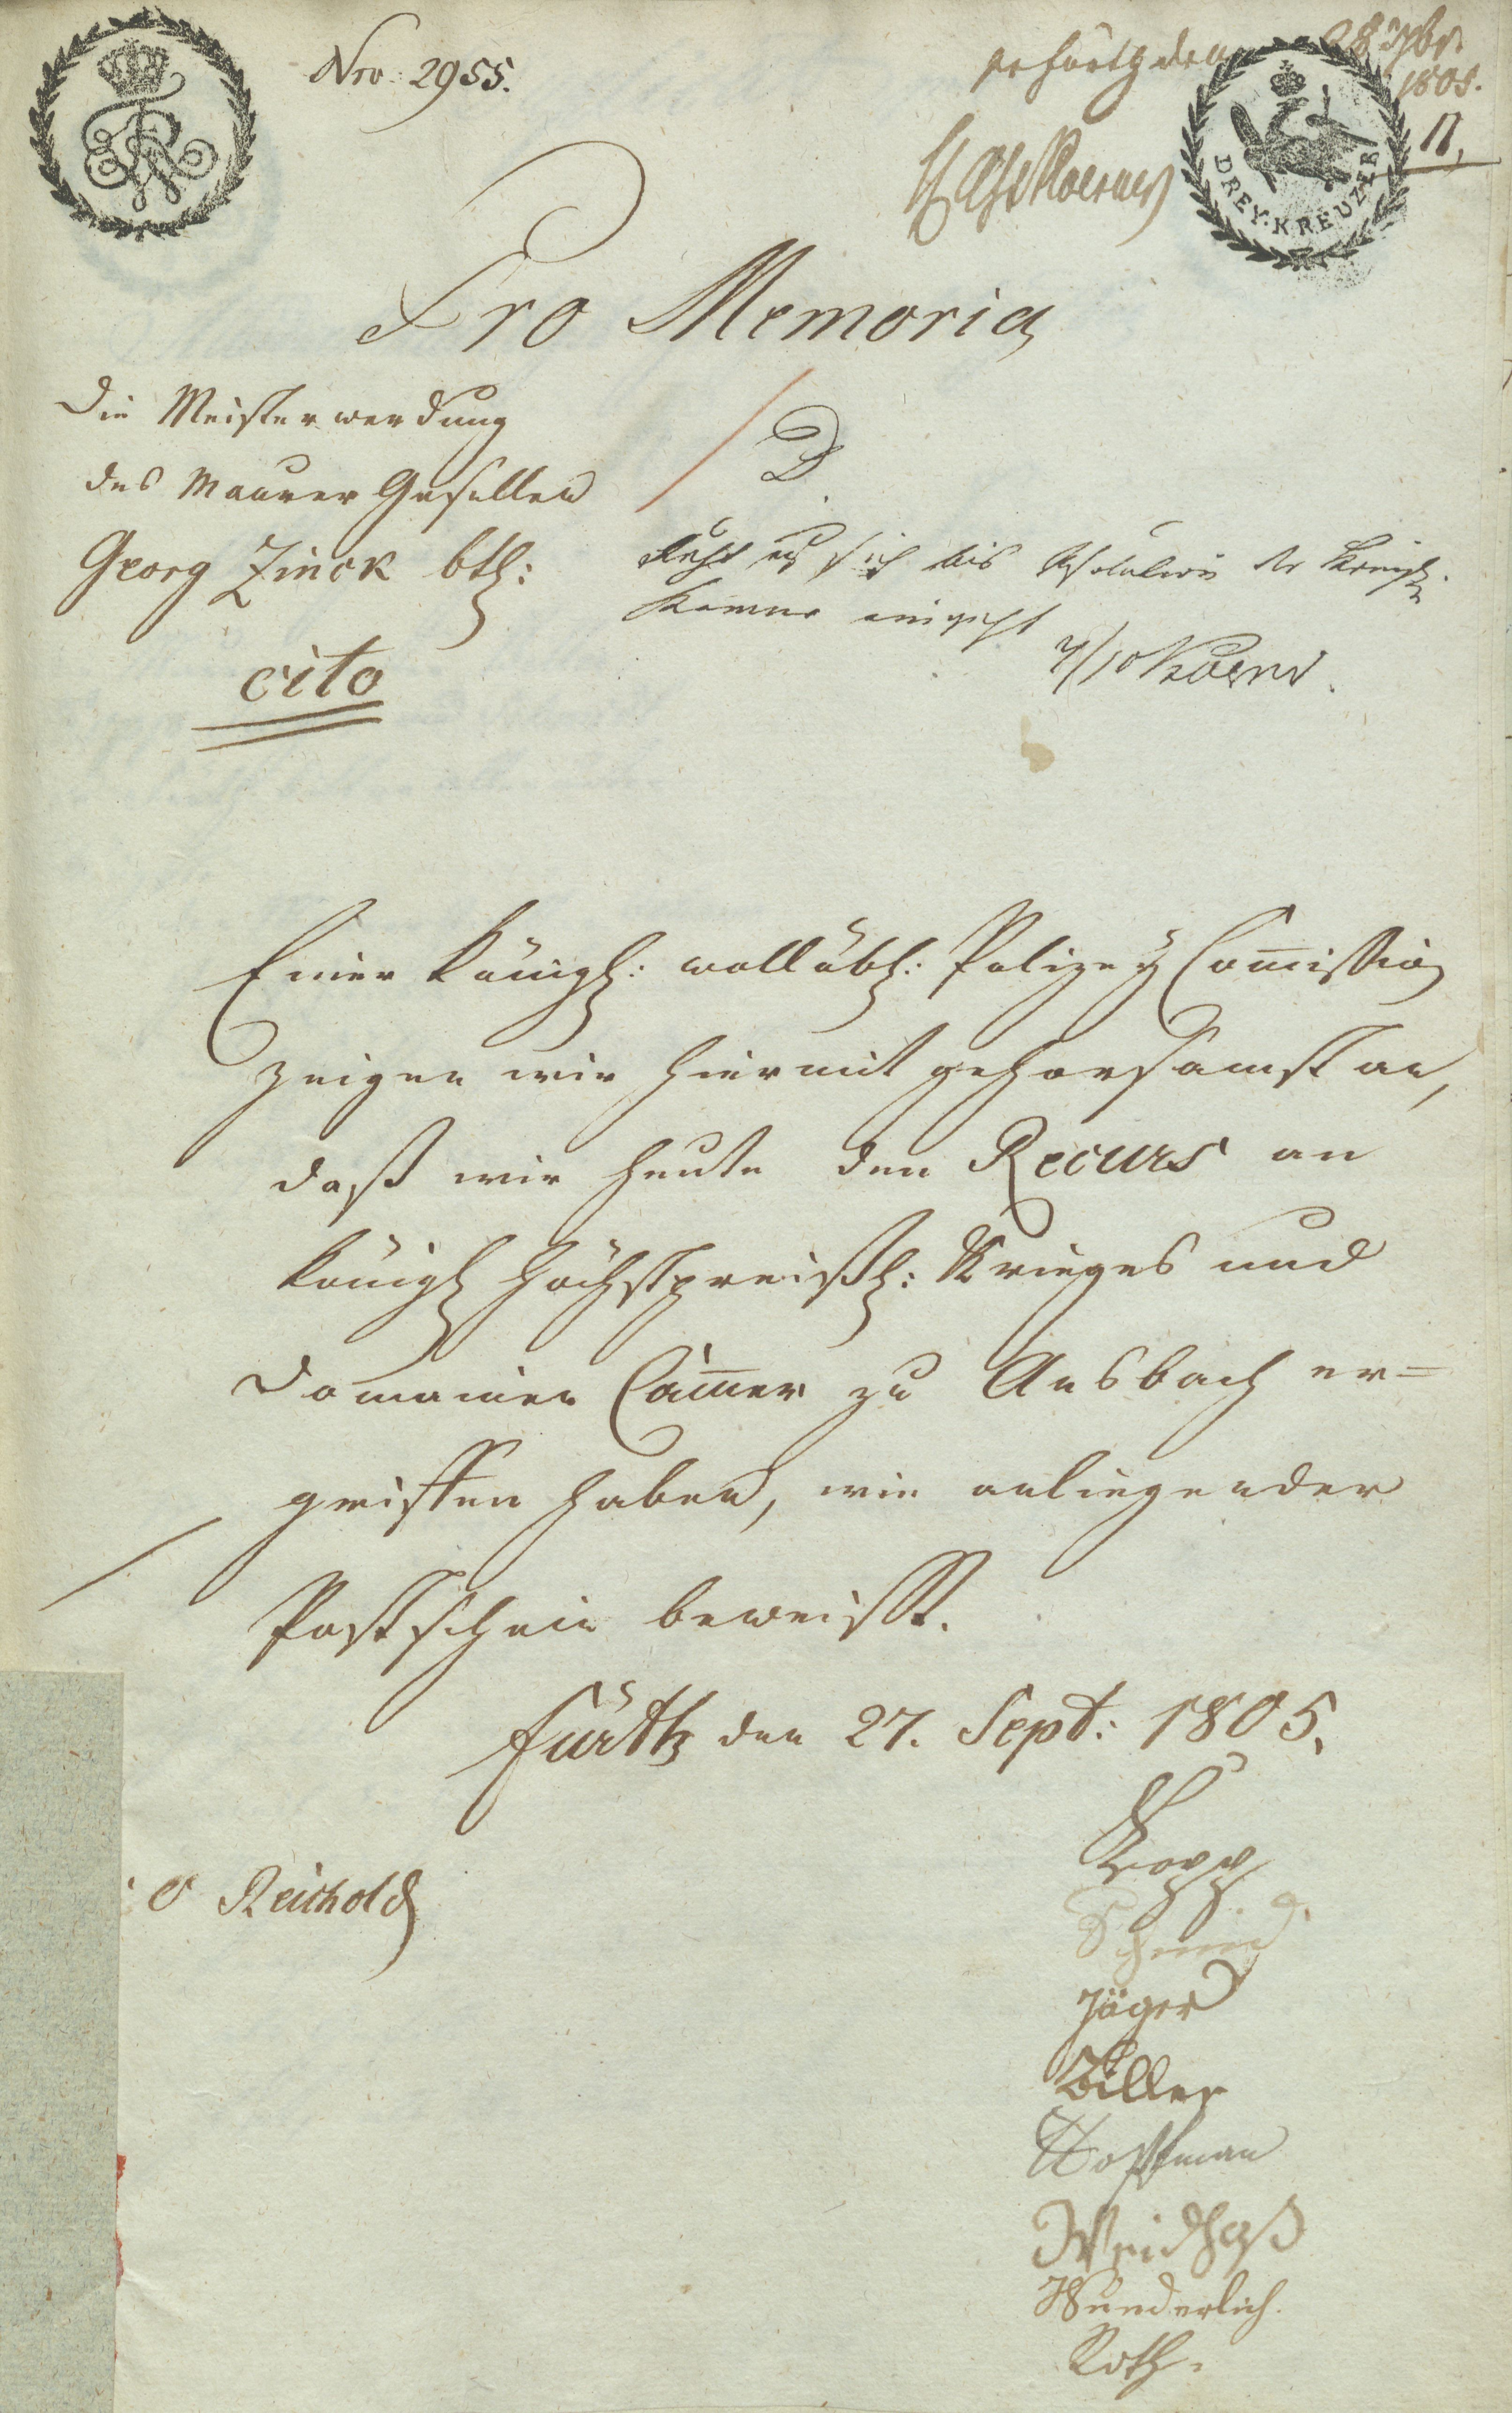 Nro: 2955.
28 7br.
1805.
DREY. KREUZER
Pro Memoria
Die Meisterwerdung
des Maurer Gesellen
Georg Zinck bth:
cito
D
bis Resolution der Königl.
Kammer eingeht
Einer Königl: wollöbl: Polizey Com̅ission
zeigen wir hiermit gehorsamst an,
daß wir heute den Recurs an
Königl höchstpreißl: Krieges und
Domainen Cam̅er zu Ansbach er=
griffen haben, wie anliegender
Postschein beweißt.
Fürth den 27. Sept: 1805.
Kopp.
Schmid.
Jäger
Ziller
Hoffman
Weidhaß
Wunderlich.
Roth.
Reithold